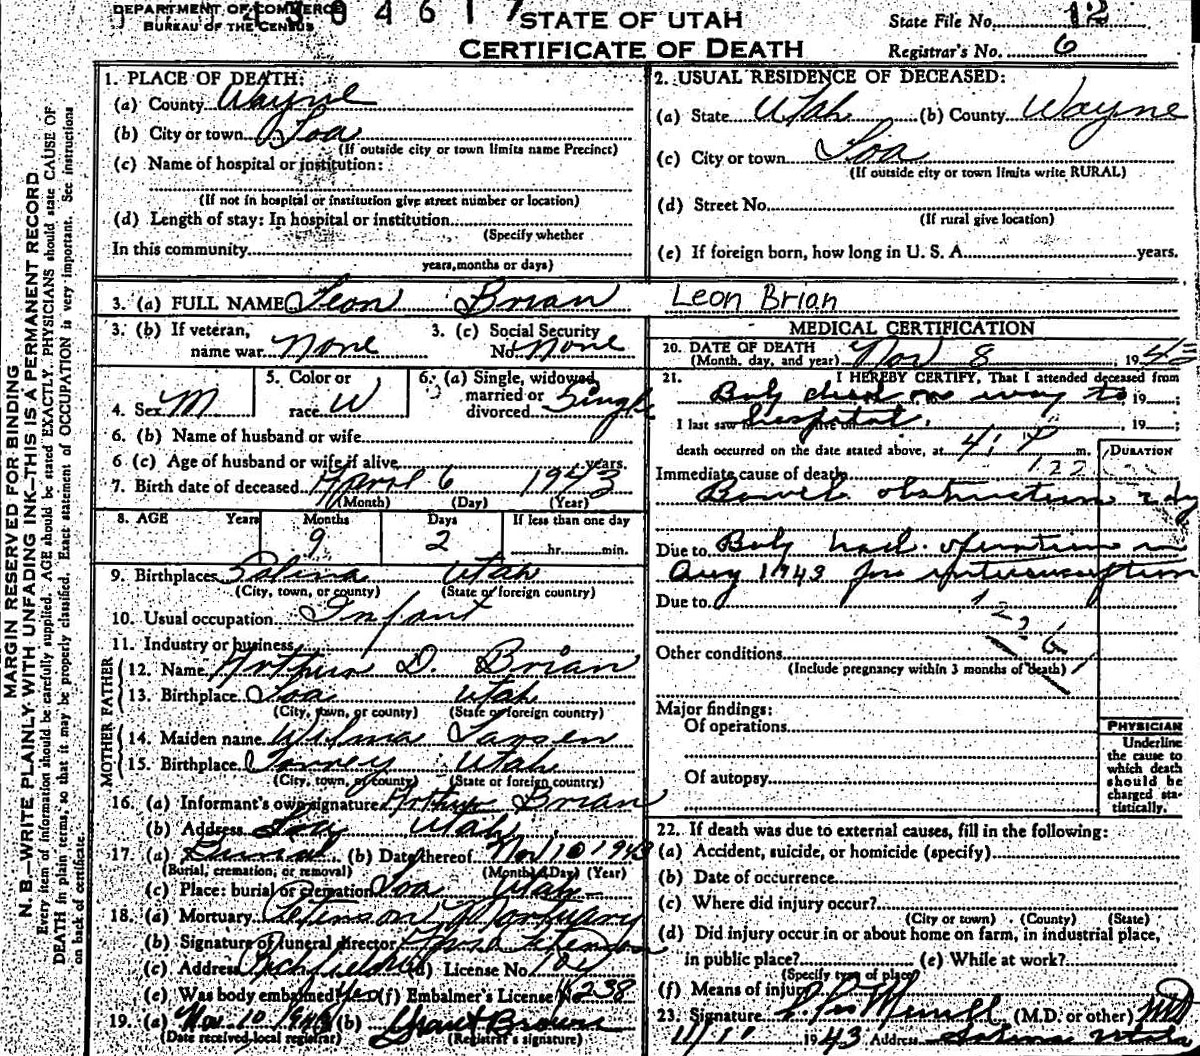 DEPARTMENT OF COMMERCE
BUREAU OF THE CENSUS
STATE OF UTAH
CERTIFICATE OF DEATH
State File No. 12
Registrar's No. 6
MARGIN RESERVED FOR BINDING
N. B.—WRITE PLAINLY WITH UNFADING INK—THIS IS A PERMANENT RECORD
Every item of information should be carefully supplied. AGE should be stated EXACTLY. PHYSICIANS should state CAUSE OF
DEATH in plain terms, so that it may be properly classified. Exact statement of OCCUPATION is very important. See instructions
on back of certificate.
1. PLACE OF DEATH:
(a) County Wayne
(b) City or town Loa
(If outside city or town limits name Precinct)
(c) Name of hospital or institution:
(If not in hospital or institution give street number or location)
(d) Length of stay: In hospital or institution
(Specify whether
In this community
years, months or days)
2. USUAL RESIDENCE OF DECEASED:
(a) State Utah (b) County Wayne
(c) City or town Loa
(If outside city or town limits write RURAL)
(d) Street No.
(If rural give location)
(e) If foreign born, how long in U. S. A. years.
3. (a) FULL NAME Leon Brian Leon Brian
3. (b) If veteran, name war None
3. (c) Social Security No. None
4. Sex M
5. Color or race W
6. (a) Single, widowed, married or divorced Single
6. (b) Name of husband or wife
6 (c) Age of husband or wife if alive years.
7. Birth date of deceased April 6 1943
(Month) (Day) (Year)
8. AGE Years Months Days If less than one day
9 2 hr. min.
9. Birthplace Salina Utah
(City, town, or county) (State or foreign country)
10. Usual occupation Infant
11. Industry or business
FATHER
12. Name Arthur D. Brian
13. Birthplace Loa Utah
(City, town, or county) (State or foreign country)
MOTHER
14. Maiden name Wilma Larsen
15. Birthplace Torrey Utah
(City, town, or county) (State or foreign country)
16. (a) Informant's own signature Arthur Brian
(b) Address Loa Utah
17. (a) Burial (b) Date thereof Nov 10 1943
(Burial, cremation, or removal) (Month) (Day) (Year)
(c) Place: burial or cremation Loa Utah
18. (a) Mortuary Mortuary
(b) Signature of funeral director
(c) Address Richfield (d) License No.
(e) Was body embalmed Yes (f) Embalmer's License No. 238
19. (a) Nov. 10 1943 (b) Grant Brown
(Date received local registrar) (Registrar's signature)
MEDICAL CERTIFICATION
20. DATE OF DEATH
(Month, day, and year) Nov 8, 1943
21. I HEREBY CERTIFY, That I attended deceased from
Baby died on way to, 19 ;
I last saw hospital. , 19 ;
death occurred on the date stated above, at 4:P m.
DURATION
Immediate cause of death 122
Bowel obstruction 2 dy
Due to Baby had operation in
Aug 1943 for intersusception
Due to
Other conditions
(Include pregnancy within 3 months of death)
Major findings:
Of operations
Of autopsy
PHYSICIAN
Underline
the cause to
which death
should be
charged sta-
tistically.
22. If death was due to external causes, fill in the following:
(a) Accident, suicide, or homicide (specify)
(b) Date of occurrence
(c) Where did injury occur?
(City or town) (County) (State)
(d) Did injury occur in or about home on farm, in industrial place,
in public place? (e) While at work?
(Specify type of place)
(f) Means of injury
23. Signature (M.D. or other) MD
1943 Address Salina Utah